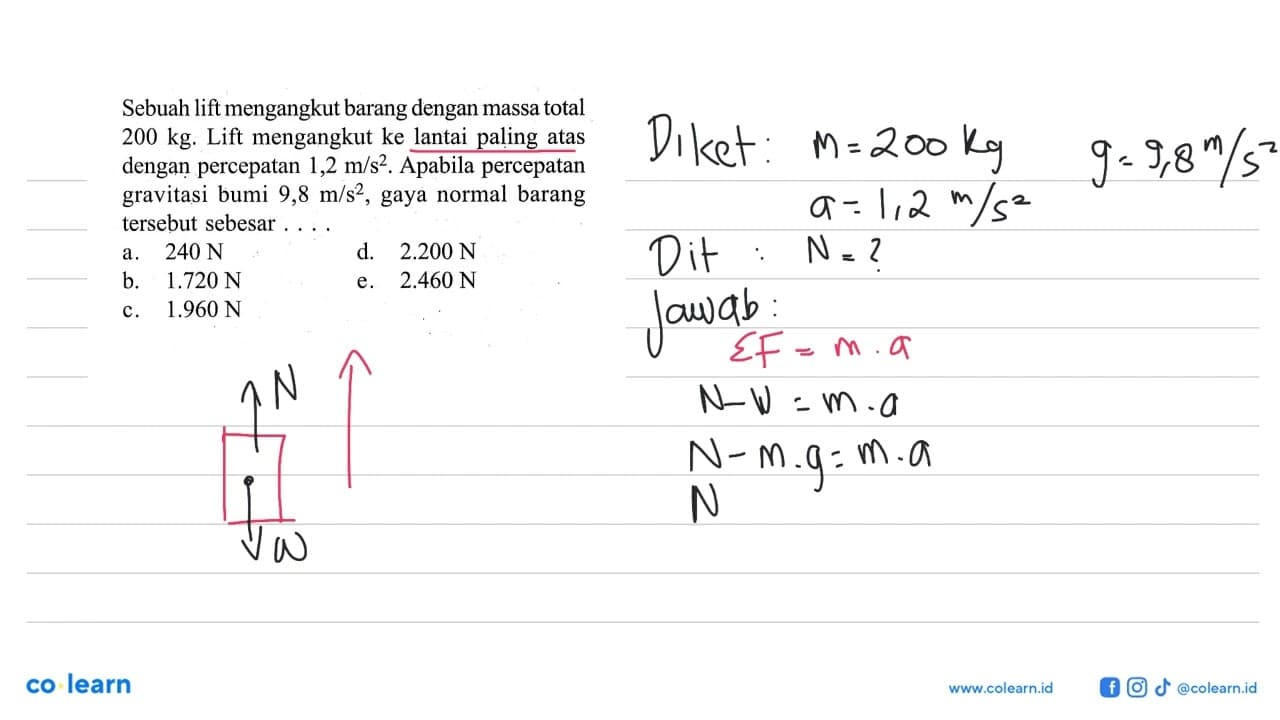 Sebuah lift mengangkut barang dengan massa total
200 kg. Lift mengangkut ke lantai paling atas
dengan percepatan 1,2 m/s². Apabila percepatan
gravitasi bumi 9,8 m/s², gaya normal barang
tersebut sebesar . . . .
a. 240 N d. 2.200 N
b. 1.720 N e. 2.460 N
c. 1.960 N
N
W
Diket: m = 200 kg g = 9,8 m/s²
a = 1,2 m/s²
Dit : N = ?
Jawab :
ΣF = m . a
N - W = m . a
N - m . g = m . a
N
co learn
www.colearn.id @colearn.id